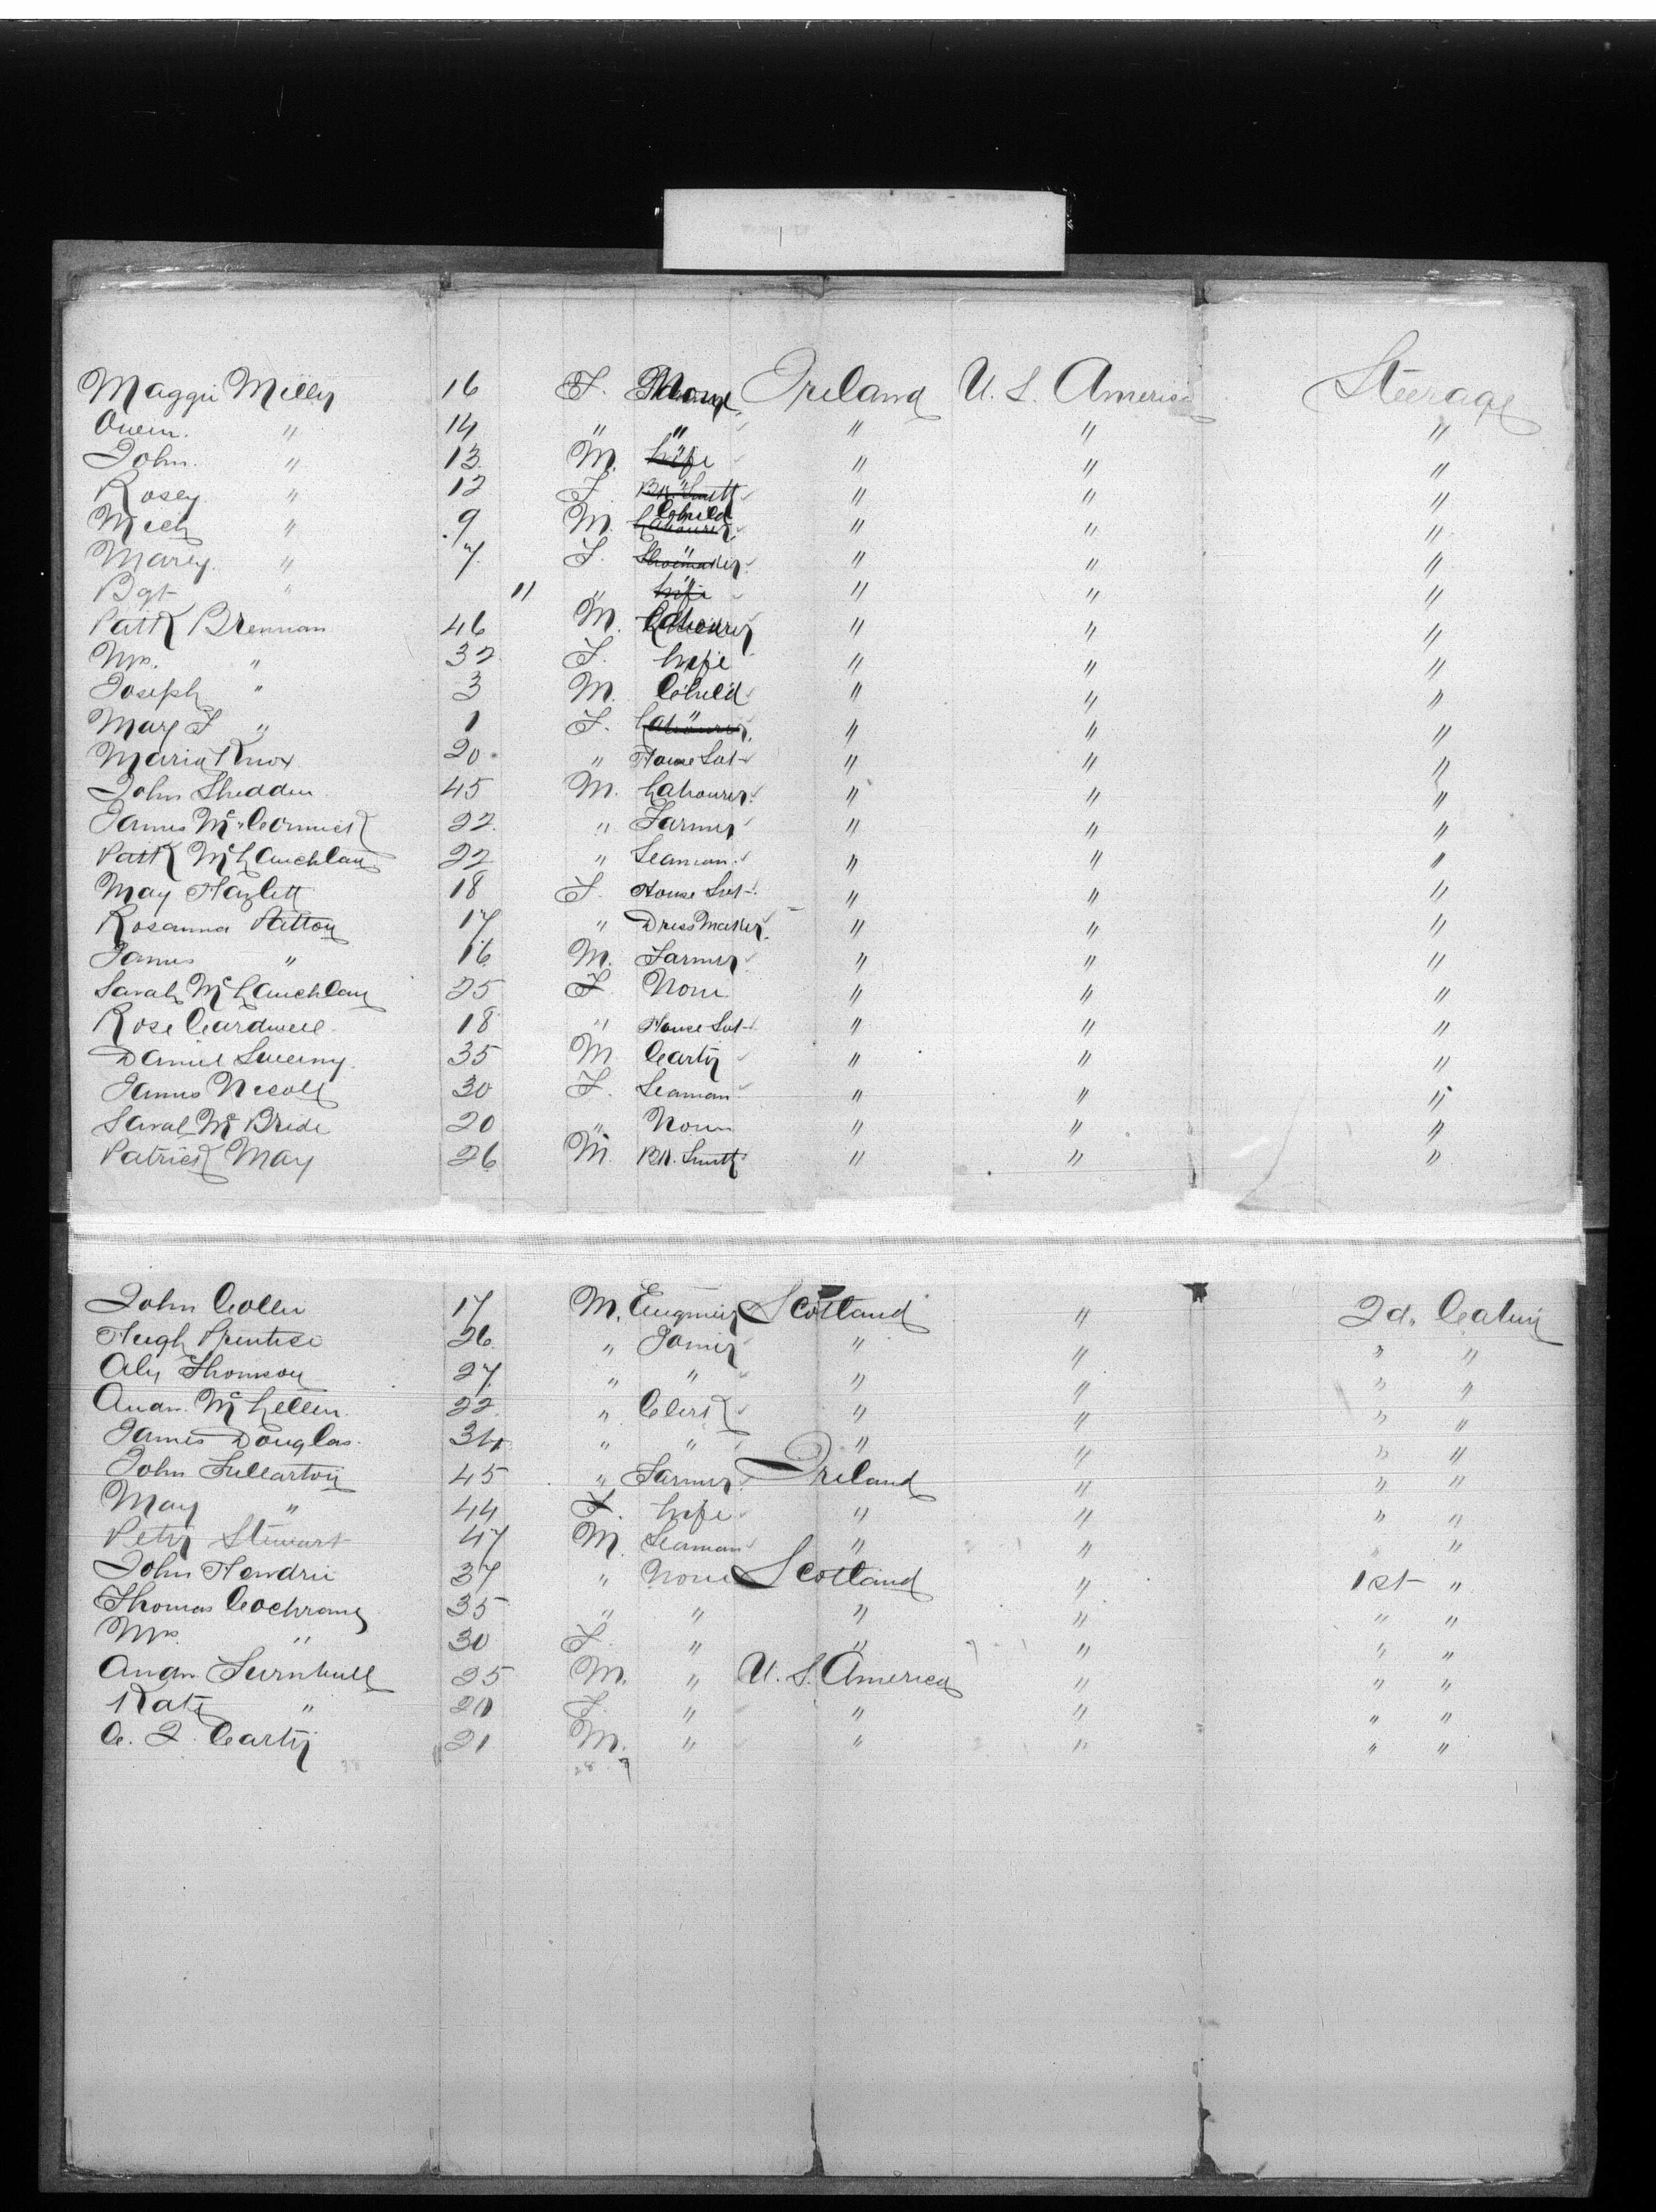 Maggie Milley 16 F. None Ireland U. S. America Steerage
Owen. " 14 " " " " "
John. " 13 M. Wife " " "
Rosey " 12 F. Bk. Smith " " "
Mich " 9 M. Labourer Child " " "
Marey. " 7 F. Shoemaker " " " "
Bgt " 11 " Wife " " " "
Patk Brennan 46 M. Labourer " " "
Mrs. " 32 F. Wife " " "
Joseph " 3 M. Child " " "
Mary J " 1 F. Labourer " " " "
Maria Knox 20 " House Svt " " "
John Shedden 45 M. Labourer " " "
James McCormick 22 " Farmer " " "
Patk McLauchlan 22 " Seaman " " "
May Hazlett 18 F. House Svt " " "
Rosanna Patton 17 " Dress Maker " " "
James " 16 M. Farmer " " "
Sarah McLauchlan 25 F. None " " "
Rose Cardwell 18 " House Svt " " "
Daniel Sweeny 35 M Carter " " "
James Nicoll 30 F. Seaman " " "
Sarah McBride 20 " None " " "
Patrick May 26 M Bk. Smith " " "
John Collie 17 M. Engineer Scotland " 2d. Cabin
Hugh Prentice 26 " Joiner " " " "
Alex Thomson 27 " " " " " "
Andw. McLellan 22 " Clerk " " " "
James Douglas 34 " " " " " "
John Fullarton 45 " Farmer Ireland " " "
May " 44 F. Wife " " " "
Peter Stewart 47 M. Seaman " " " "
John Hendrie 37 " None Scotland " 1st "
Thomas Cochrane 35 " " " " " "
Mrs. " 30 F. " " " " "
Andw. Turnbull 25 M. " U. S. America " " "
Kate " 20 F. " " " " "
C. J. Carter 21 M. " " " " "